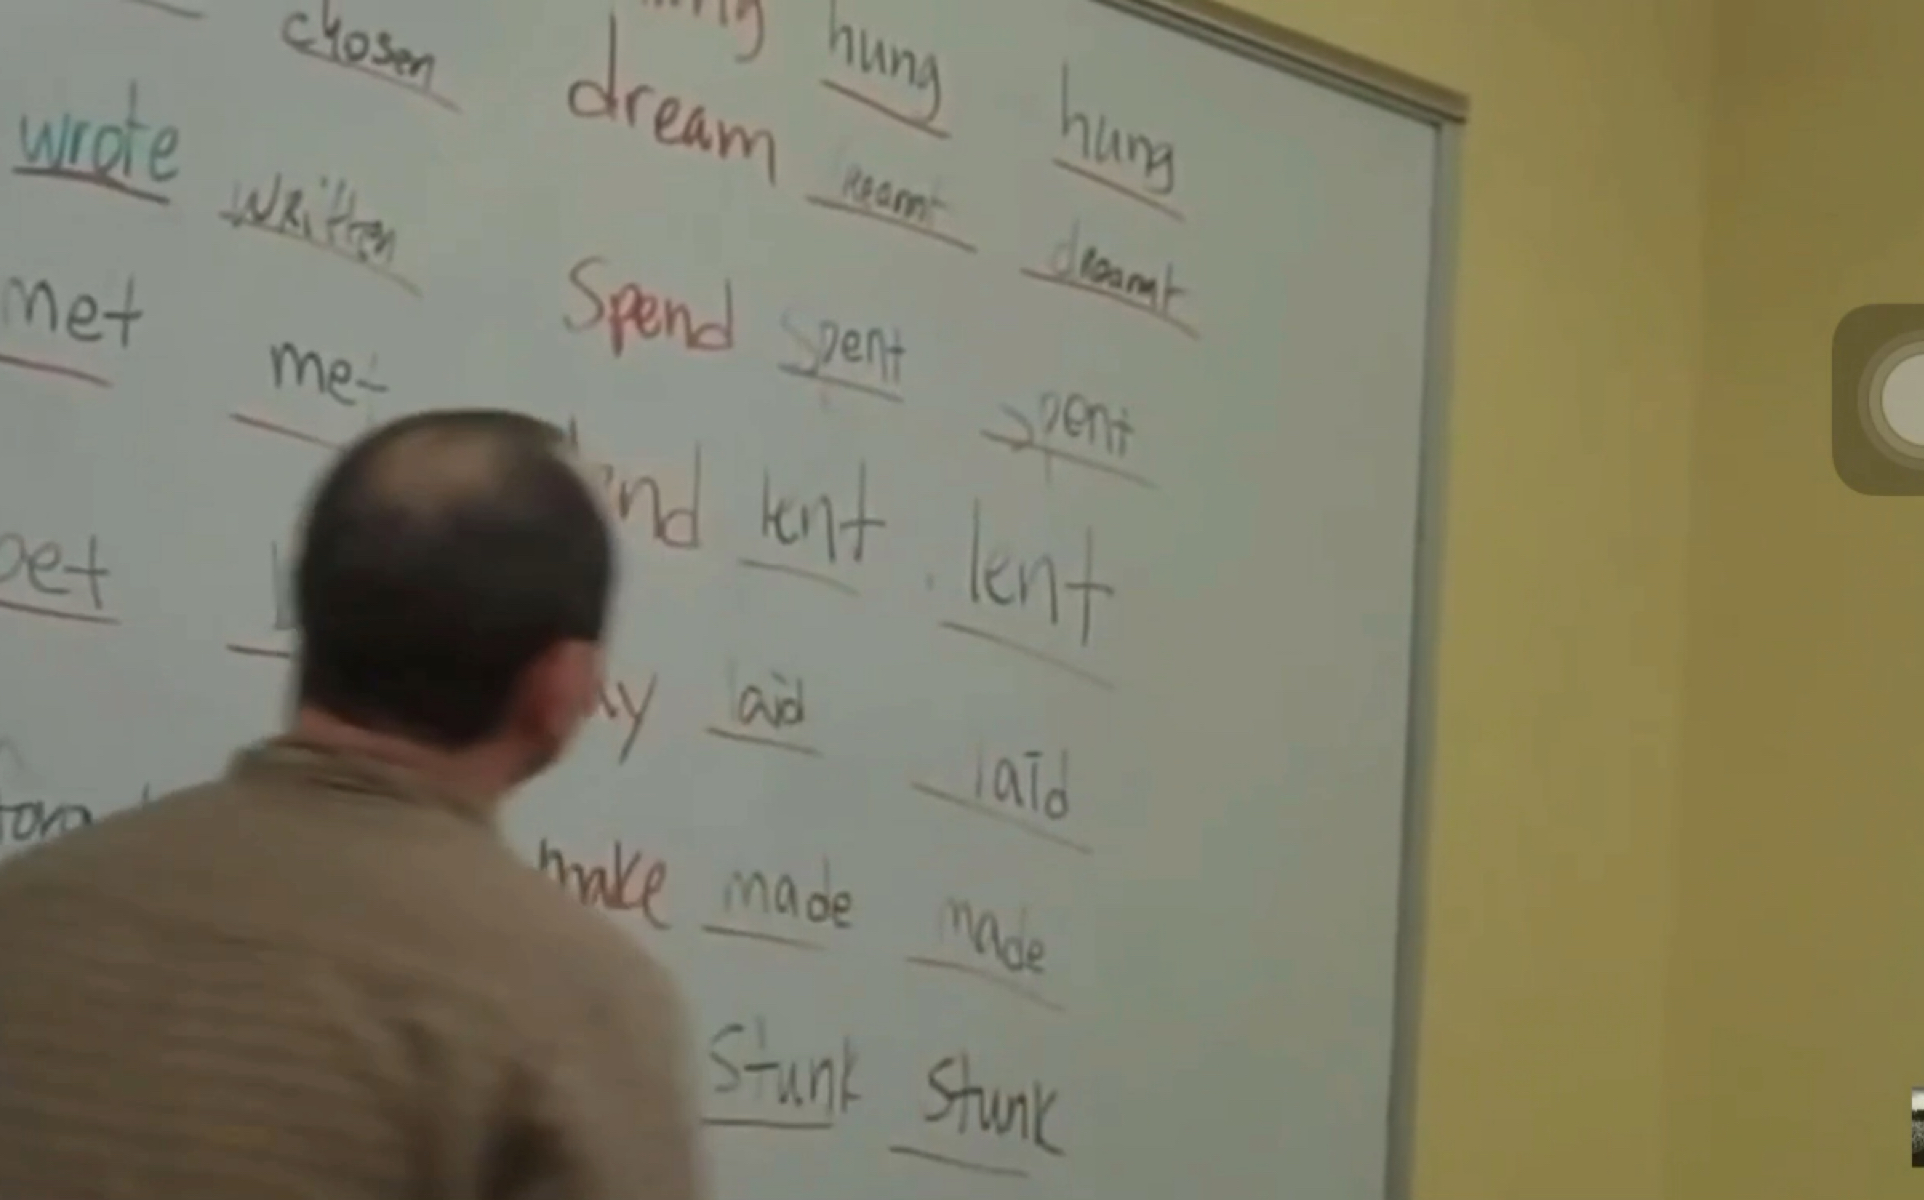 chosen hung hung
wrote written dream dreamt
met met Spend spent spent
lent lent
laid laid
make made made
Stunk Stunk